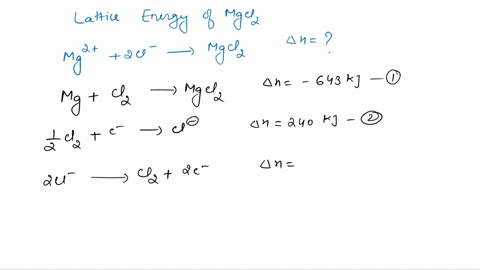 Lattice Energy of MgCl₂
Mg²⁺ + 2Cl⁻ → MgCl₂ ΔH = ?
Mg + Cl₂ → MgCl₂ ΔH = - 643 KJ — ①
1/2 Cl₂ + e⁻ → Cl⊖ ΔH = 240 KJ — ②
2Cl⁻ → Cl₂ + 2e⁻ ΔH =